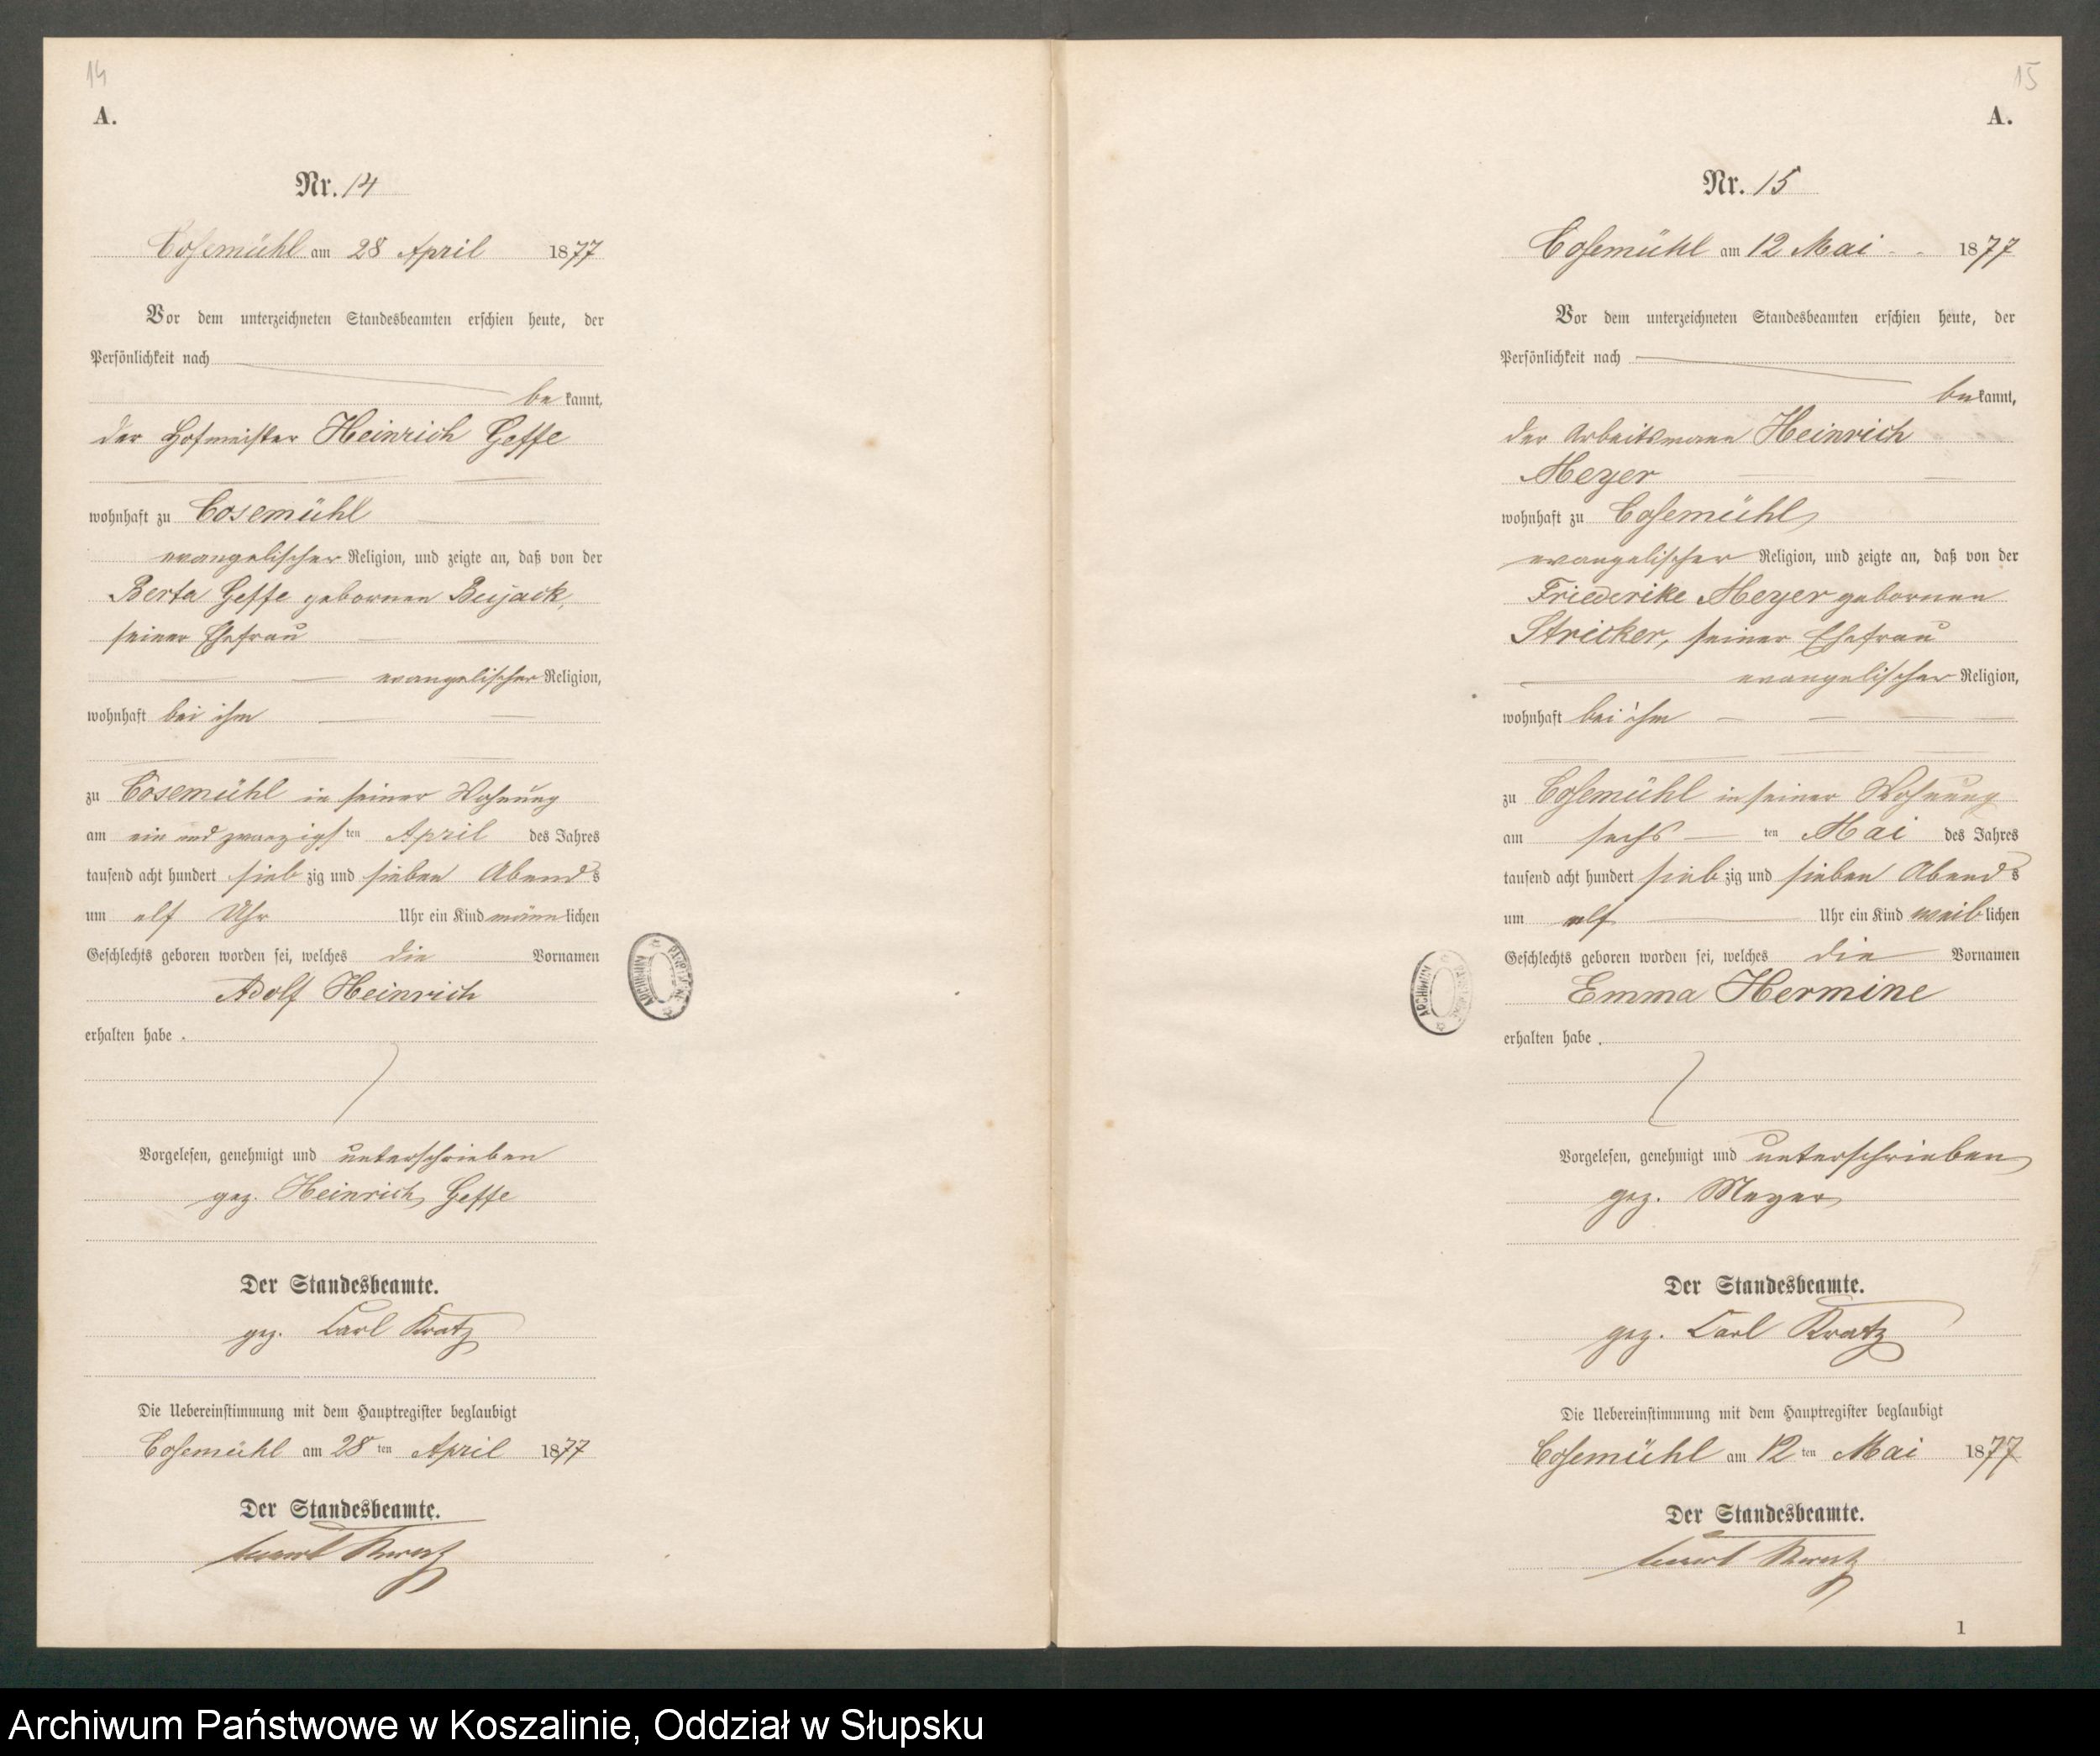 14
A.
Nr. 14
Cosemühl am 28 April 1877
Vor dem unterzeichneten Standesbeamten erschien heute, der
Persönlichkeit nach
be kannt,
der Hofmeister Heinrich Geffe
wohnhaft zu Cosemühl
evangelischer Religion, und zeigte an, daß von der
Berta Geffe gebornen Bujack,
seiner Ehefrau
evangelischer Religion,
wohnhaft bei ihm
zu Cosemühl in seiner Wohnung
am ein und zwanzigsten April des Jahres
tausend acht hundert sieb zig und sieben Abends
um elf Uhr Uhr ein Kind männlichen
Geschlechts geboren worden sei, welches die Vornamen
Adolf Heinrich
erhalten habe.
Vorgelesen, genehmigt und unterschrieben
gez. Heinrich Geffe
Der Standesbeamte.
gez. Carl Kratz
Die Uebereinstimmung mit dem Hauptregister beglaubigt
Cosemühl am 28ten April 1877
Der Standesbeamte.
Kratz
ARCHIWUM PAŃSTWOWE
15
A.
Nr. 15
Cosemühl am 12 Mai 1877
Vor dem unterzeichneten Standesbeamten erschien heute, der
Persönlichkeit nach
bekannt,
der Arbeitsmann Heinrich
Meyer
wohnhaft zu Cosemühl
evangelischer Religion, und zeigte an, daß von der
Friederike Meyer gebornen
Stricker, seiner Ehefrau
evangelischer Religion,
wohnhaft bei ihm
zu Cosemühl in seiner Wohnung
am sechs ten Mai des Jahres
tausend acht hundert sieb zig und sieben Abends
um elf Uhr ein Kind weiblichen
Geschlechts geboren worden sei, welches die Vornamen
Emma Hermine
erhalten habe.
Vorgelesen, genehmigt und unterschrieben
gez. Meyer
Der Standesbeamte.
gez. Carl Kratz
Die Uebereinstimmung mit dem Hauptregister beglaubigt
Cosemühl am 12ten Mai 1877
Der Standesbeamte.
Kratz
1
ARCHIWUM PAŃSTWOWE
Archiwum Państwowe w Koszalinie, Oddział w Słupsku